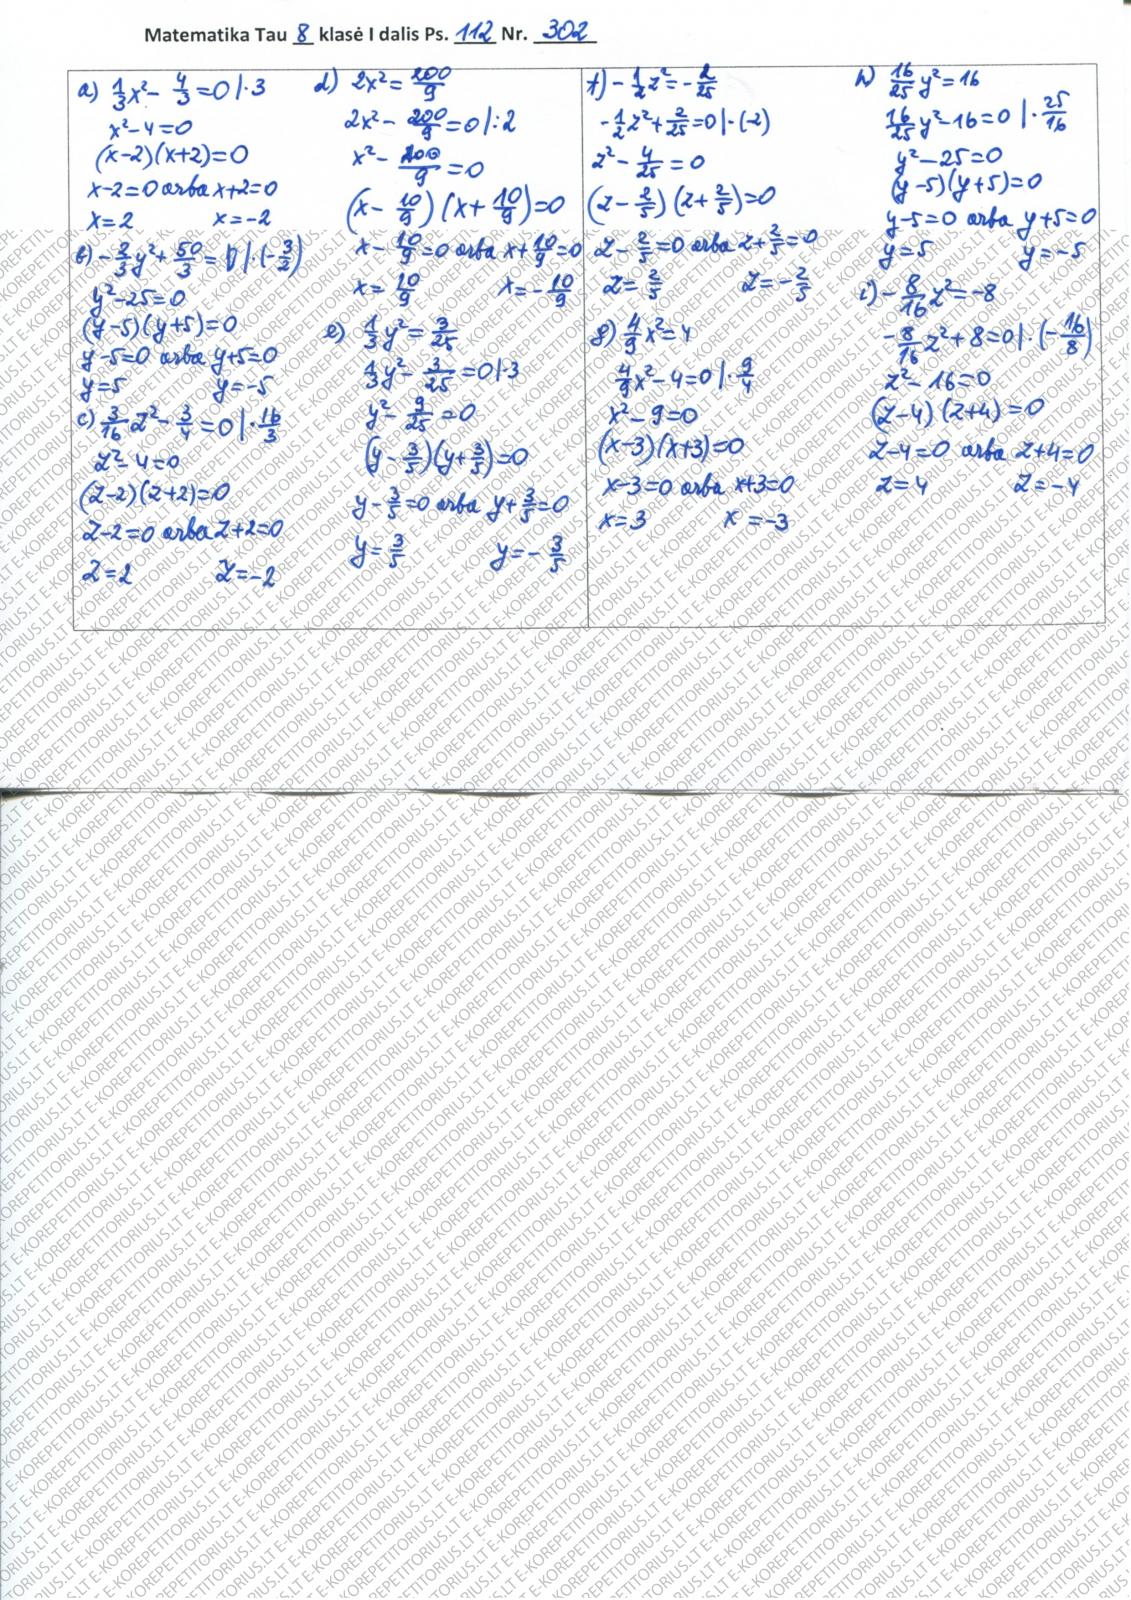 Matematika Tau 8 klasė I dalis Ps. 112 Nr. 302
a) 1/3 x² - 4/3 = 0 |·3
x² - 4 = 0
(x-2)(x+2) = 0
x-2=0 arba x+2=0
x=2 x=-2
b) -2/3 y² + 50/3 = 0 |·(-3/2)
y² - 25 = 0
(y-5)(y+5) = 0
y-5=0 arba y+5=0
y=5 y=-5
c) 3/16 z² - 3/4 = 0 |·16/3
z² - 4 = 0
(z-2)(z+2) = 0
z-2=0 arba z+2=0
z=2 z=-2
d) 2x² = 200/9
2x² - 200/9 = 0 |:2
x² - 200/9 = 0
(x - 10/9)(x + 10/9) = 0
x - 10/9 = 0 arba x + 10/9 = 0
x = 10/9 x = -10/9
e) 1/3 y² = 3/25
1/3 y² - 3/25 = 0 |·3
y² - 9/25 = 0
(y - 3/5)(y + 3/5) = 0
y - 3/5 = 0 arba y + 3/5 = 0
y = 3/5 y = -3/5
f) -1/2 z² = -2/25
-1/2 z² + 2/25 = 0 |·(-2)
z² - 4/25 = 0
(z - 2/5)(z + 2/5) = 0
z - 2/5 = 0 arba z + 2/5 = 0
z = 2/5 z = -2/5
g) 4/9 x² = 4
4/9 x² - 4 = 0 |·9/4
x² - 9 = 0
(x-3)(x+3) = 0
x-3=0 arba x+3=0
x=3 x=-3
h) 16/25 y² = 16
16/25 y² - 16 = 0 |·25/16
y² - 25 = 0
(y-5)(y+5) = 0
y-5=0 arba y+5=0
y=5 y=-5
i) -8/16 z² = -8
-8/16 z² + 8 = 0 |·(-16/8)
z² - 16 = 0
(z-4)(z+4) = 0
z-4=0 arba z+4=0
z=4 z=-4
E-KOREPETITORIUS.LT